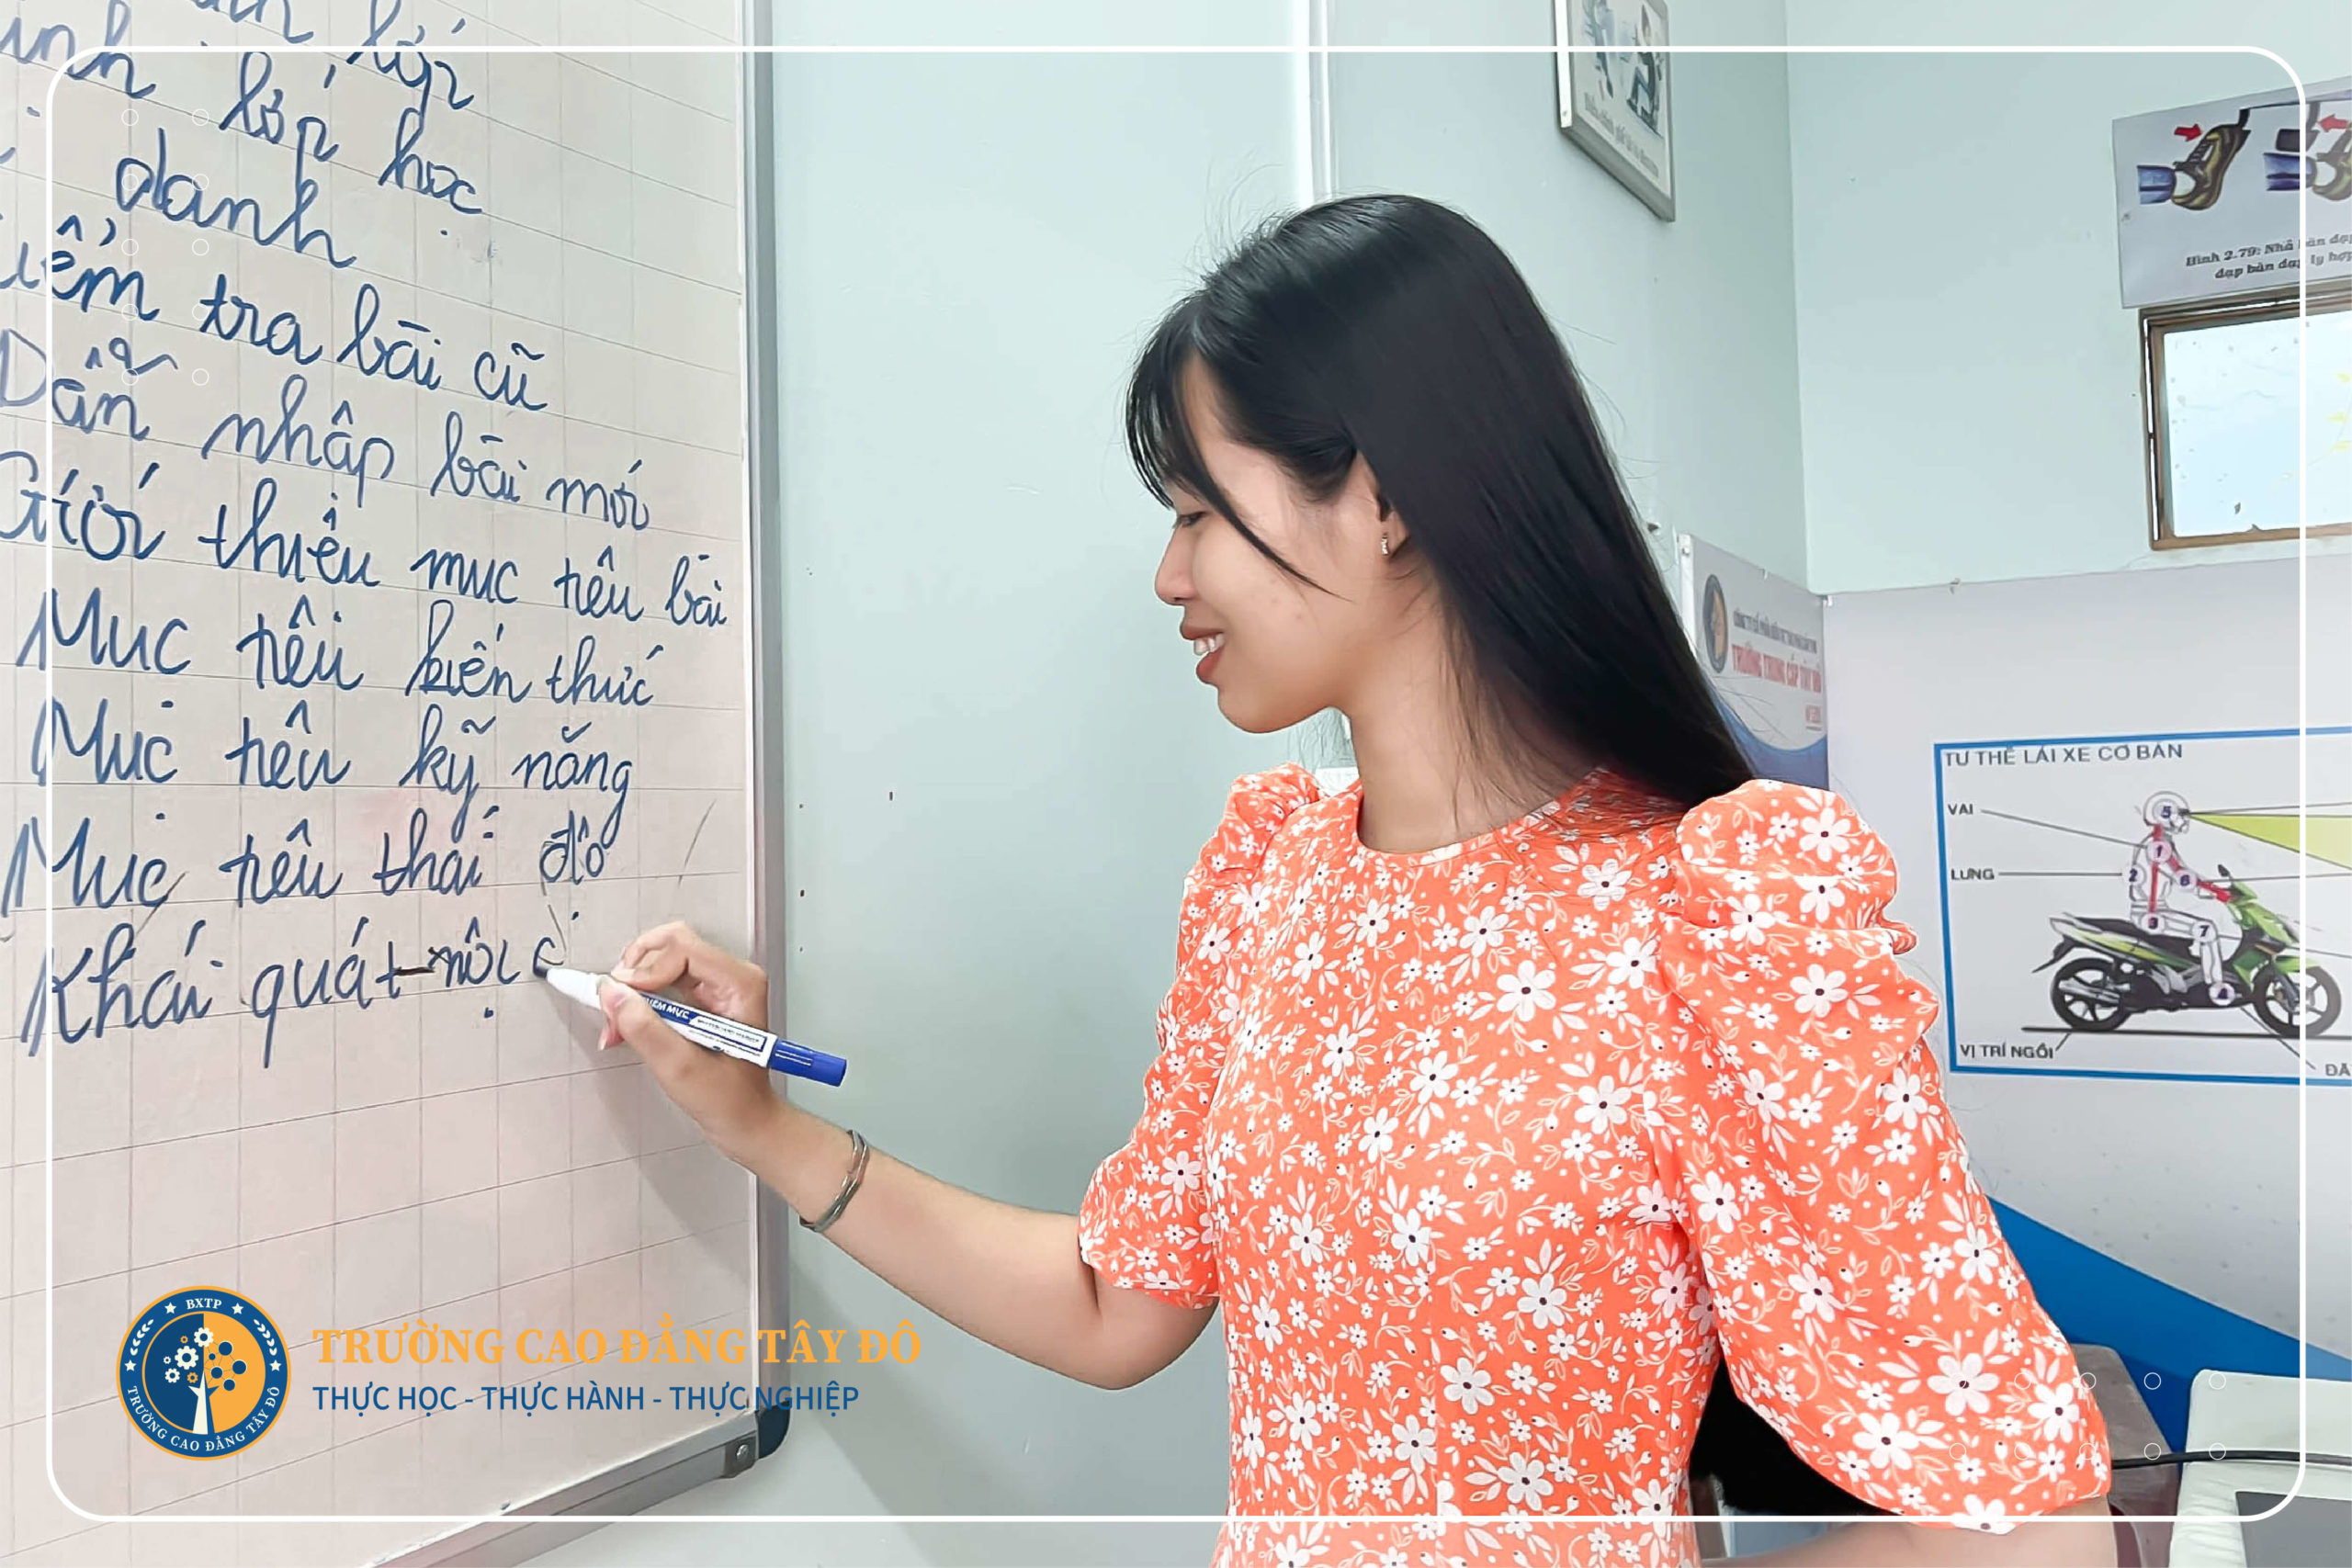 lớp
lớp học
danh
tra bài cũ
Dẫn nhập bài mới
Giới thiệu mục tiêu bài
Mục tiêu kiến thức
Mục tiêu kỹ năng
Mục tiêu thái độ
Khái quát nội
Hình 2.79: Nhả bàn đạp
đạp bàn đạp ly hợp
TRƯỜNG TRUNG CẤP TÂY ĐÔ
TƯ THẾ LÁI XE CƠ BẢN
VAI
LƯNG
5
1
2
6
3
7
4
VỊ TRÍ NGỒI
BXTP
TRƯỜNG CAO ĐẲNG TÂY ĐÔ
TRƯỜNG CAO ĐẲNG TÂY ĐÔ
THỰC HỌC - THỰC HÀNH - THỰC NGHIỆP